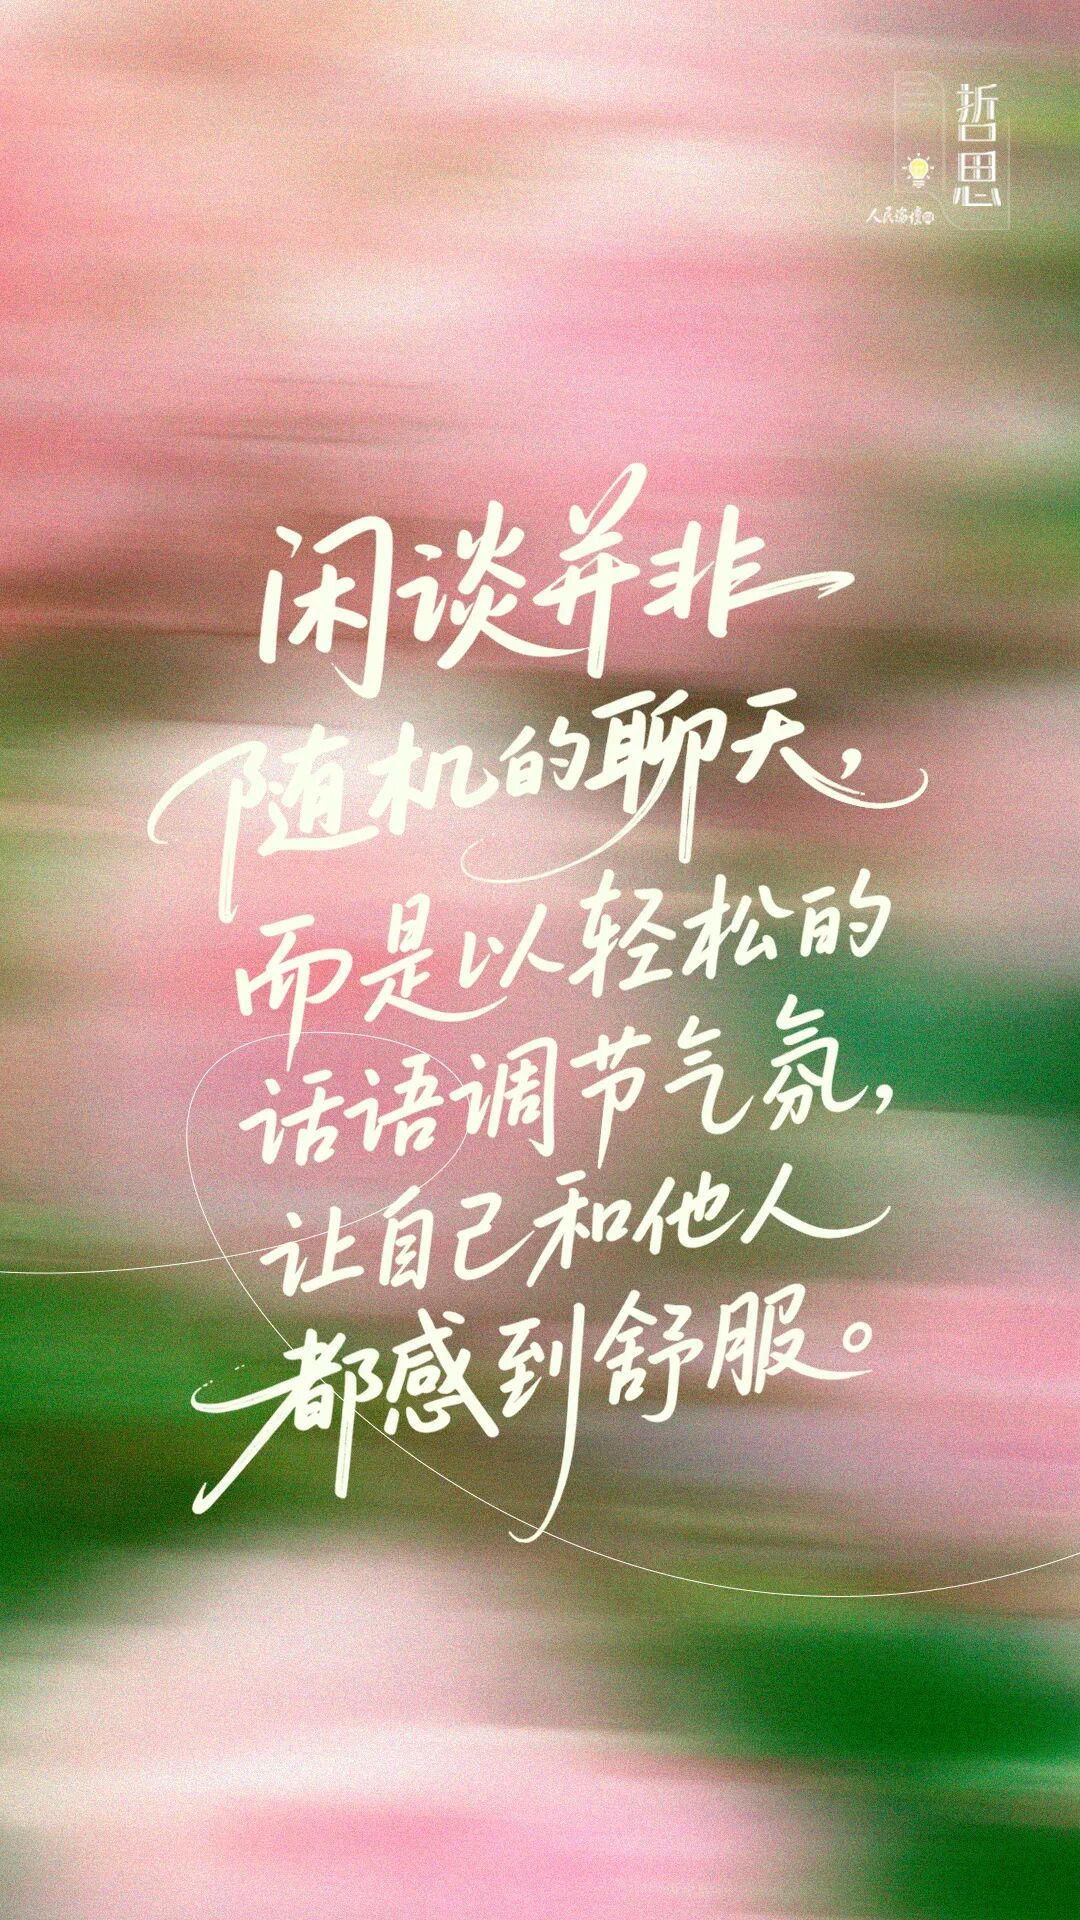 哲思
人民论读
闲谈并非
随机的聊天，
而是以轻松的
话语调节气氛，
让自己和他人
都感到舒服。